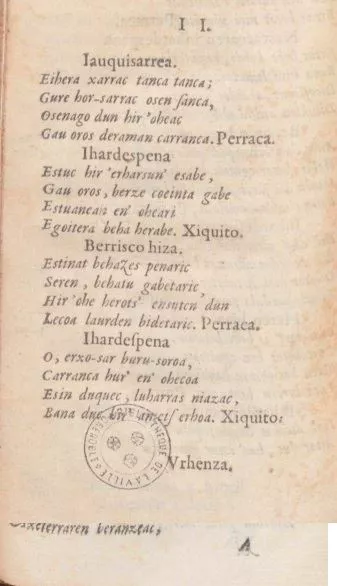 I I.
Iauquisarrea.
Eihera xarrac tanca tanca;
Gure hor-sarrac osen sanca,
Osenago dun hir'oheac
Gau oros deraman carranca. Perraca.
Ihardespena
Estuc hir'erharsun' esabe,
Gau oros, berze coeinta gabe
Estuanean en' oheari
Egoitera beha herabe. Xiquito.
Berrisco hiza.
Estinat behaZes penaric
Seren, behatu gabetaric,
Hir'ohe herots' ensuten dun
Lecoa laurden bidetaric. Perraca.
Ihardespena
O, erxo-sar buru-soroa,
Carranca hur' en' ohecoa
Esin duquec, luharras niazac,
Bana duc hir' erhoa. Xiquito.
Vrhenza.
BIBLIOTHÈQUE DE LA VILLE
beranzeac,
A